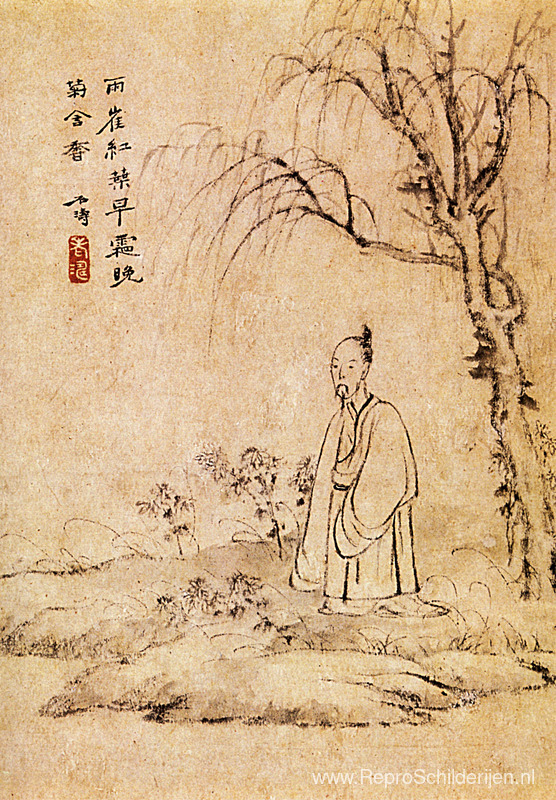 雨崔紅葉早霜晚
菊含香 石濤
老濤
www.ReproSchilderijen.nl